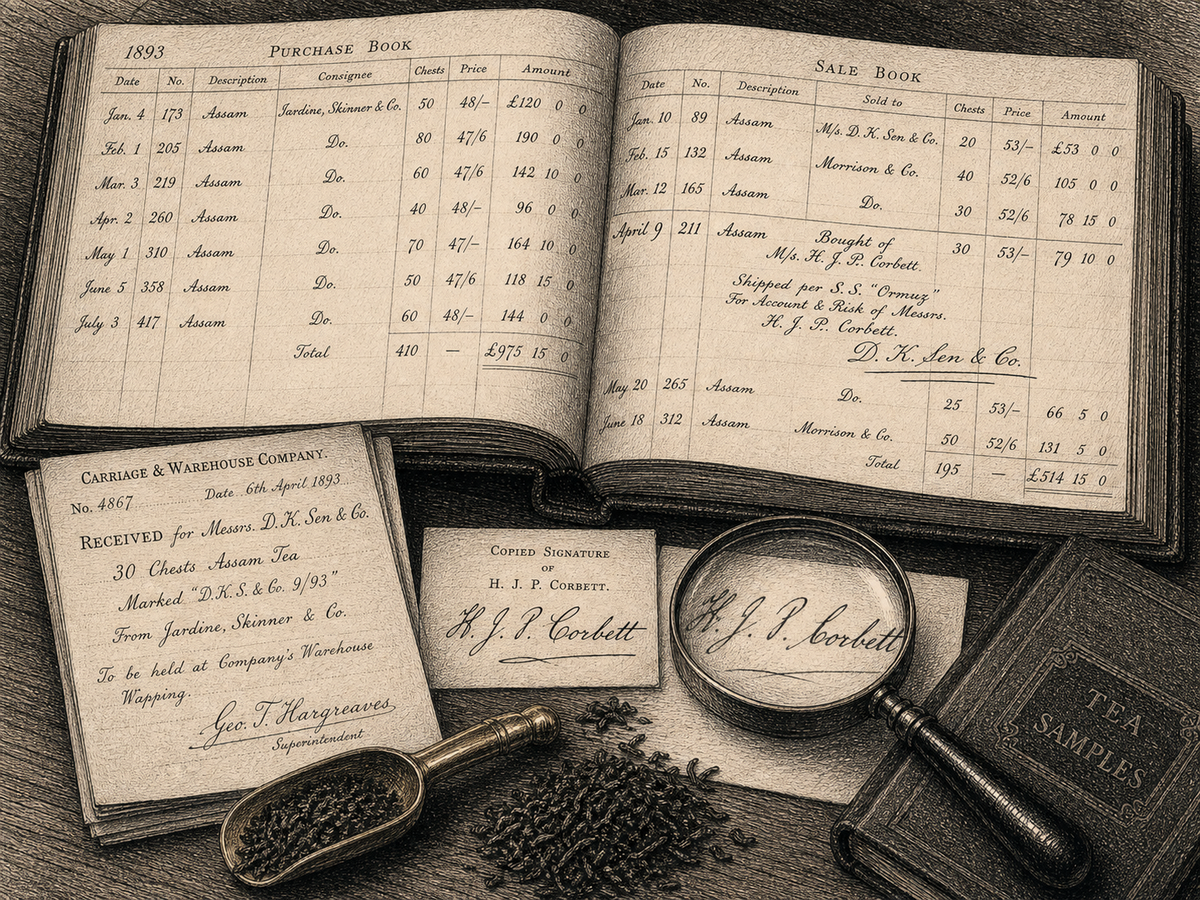 1893 PURCHASE BOOK
Date No. Description Consignee Chests Price Amount
Jan. 4 173 Assam Jardine, Skinner & Co. 50 48/– £120 0 0
Feb. 1 205 Assam Do. 80 47/6 190 0 0
Mar. 3 219 Assam Do. 60 47/6 142 10 0
Apr. 2 260 Assam Do. 40 48/– 96 0 0
May 1 310 Assam Do. 70 47/– 164 10 0
June 5 358 Assam Do. 50 47/6 118 15 0
July 3 417 Assam Do. 60 48/– 144 0 0
Total 410 — £975 15 0
SALE BOOK
Date No. Description Sold to Chests Price Amount
Jan. 10 89 Assam M/s. D. K. Sen & Co. 20 53/– £53 0 0
Feb. 15 132 Assam Morrison & Co. 40 52/6 105 0 0
Mar. 12 165 Assam Do. 30 52/6 78 15 0
April 9 211 Assam Bought of 30 53/– 79 10 0
M/s. H. J. P. Corbett.
Shipped per S. S. "Ormuz"
For Account & Risk of Messrs.
H. J. P. Corbett.
D. K. Sen & Co.
May 20 265 Assam Do. 25 53/– 66 5 0
June 18 312 Assam Morrison & Co. 50 52/6 131 5 0
Total 195 — £514 15 0
CARRIAGE & WAREHOUSE COMPANY.
No. 4867 Date 6th April 1893
RECEIVED for Messrs. D. K. Sen & Co.
30 Chests Assam Tea
Marked "D.K.S. & Co. 9/93"
From Jardine, Skinner & Co.
To be held at Company's Warehouse
Wapping.
Geo. T. Hargreaves
Superintendent
COPIED SIGNATURE
OF
H. J. P. CORBETT.
H. J. P. Corbett
H. J. P. Corbett
TEA
SAMPLES